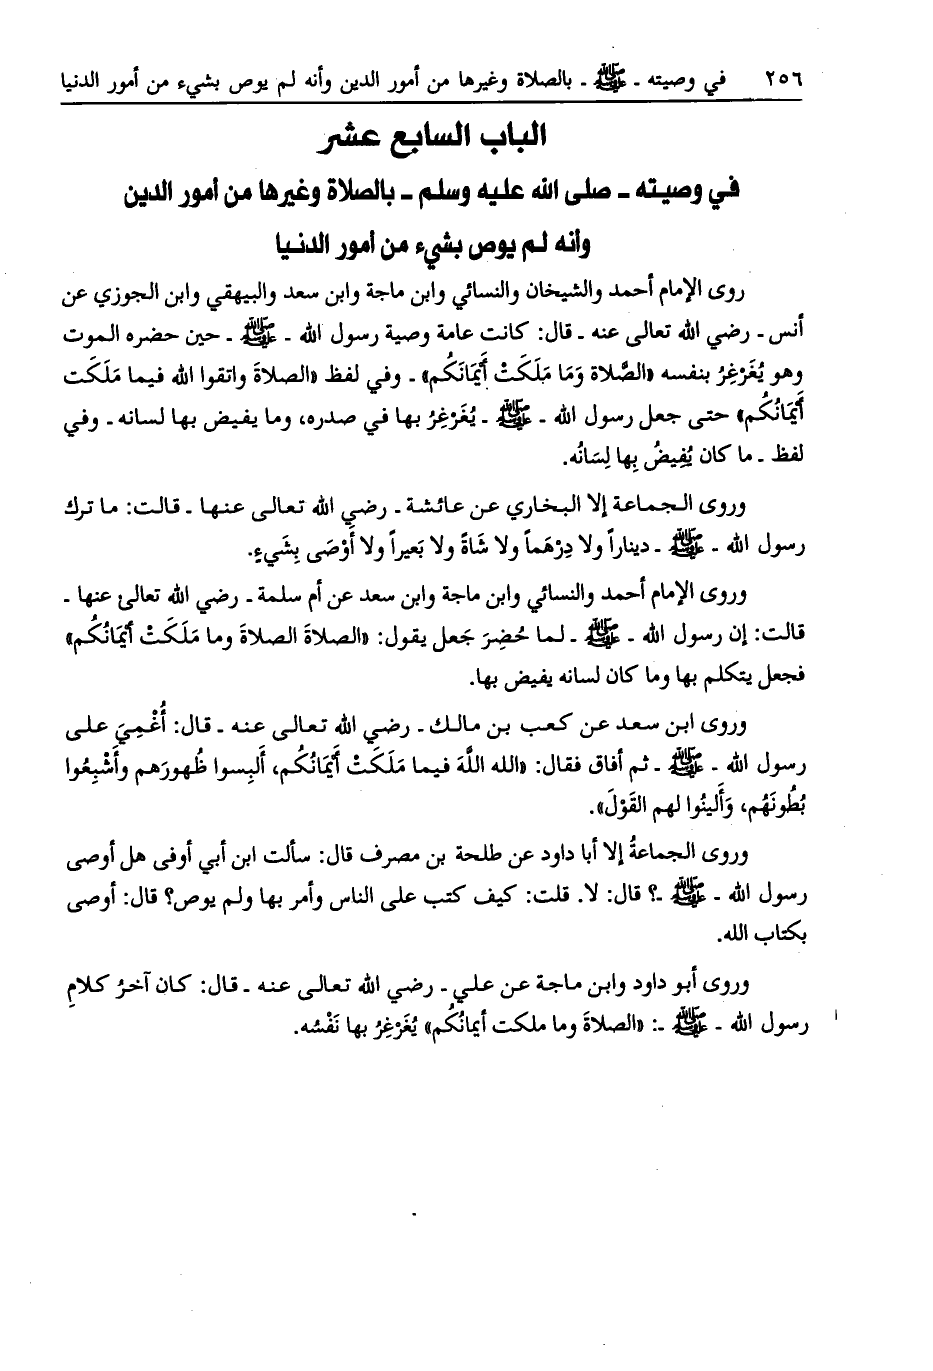 ٢٥٦ في وصيته ـ ﷺ ـ بالصلاة وغيرها من أمور الدين وأنه لم يوص بشيء من أمور الدنيا
الباب السابع عشر
في وصيته ـ صلى الله عليه وسلم ـ بالصلاة وغيرها من أمور الدين
وأنه لم يوص بشيء من أمور الدنيا
روى الإمام أحمد والشيخان والنسائي وابن ماجة وابن سعد والبيهقي وابن الجوزي عن
أنس ـ رضي الله تعالى عنه ـ قال: كانت عامة وصية رسول الله ـ ﷺ ـ حين حضره الموت
وهو يُغَرْغِرُ بنفسه «الصَّلاة وَمَا مَلَكَتْ أَيْمَانَكُم» ـ وفي لفظ «الصلاةَ واتقوا الله فيما مَلَكَت
أَيْمَانُكُم» حتى جعل رسول الله ـ ﷺ ـ يُغَرْغِرُ بها في صدره، وما يفيض بها لسانه ـ وفي
لفظ ـ ما كان يُفِيضُ بِها لِسَانُه.
وروى الجماعة إلا البخاري عن عائشة ـ رضي الله تعالى عنها ـ قالت: ما ترك
رسول الله ـ ﷺ ـ ديناراً ولا دِرْهَماً ولا شَاةً ولا بَعيراً ولا أَوْصَى بِشَيءٍ.
وروى الإمام أحمد والنسائي وابن ماجة وابن سعد عن أم سلمة ـ رضي الله تعالىٰ عنها ـ
قالت: إن رسول الله ـ ﷺ ـ لما حُضِرَ جَعل يقول: «الصلاةَ الصلاةَ وما مَلَكَتْ أَيْمَانُكُم»
فجعل يتكلم بها وما كان لسانه يفيض بها.
وروى ابن سعد عن كعب بن مالك ـ رضي الله تعالى عنه ـ قال: أُغْمِيَ على
رسول الله ـ ﷺ ـ ثم أفاق فقال: «الله اللَّهَ فيما مَلَكَتْ أَيْمَانُكُم، أَلبِسوا ظُهورَهم وأَشْبِعُوا
بُطُونَهُم، وَأَلينُوا لهم القَوْلَ».
وروى الجماعةُ إلا أبا داود عن طلحة بن مصرف قال: سألت ابن أبي أوفى هل أوصى
رسول الله ـ ﷺ ـ؟ قال: لا. قلت: كيف كتب على الناس وأمر بها ولم يوص؟ قال: أوصى
بكتاب الله.
وروى أبو داود وابن ماجة عن علي ـ رضي الله تعالى عنه ـ قال: كان آخرُ كلامِ
رسول الله ـ ﷺ ـ: «الصلاةَ وما ملكت أيمانُكُم» يُغَرْغِرُ بها نَفْسُه.